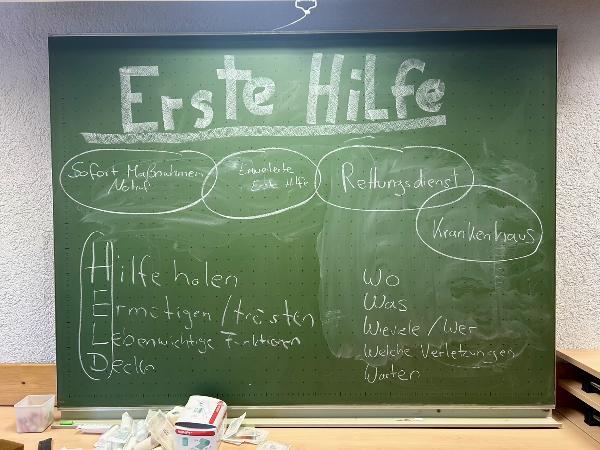 Erste Hilfe
Sofort Maßnahmen
Notruf
Erweiterte
Erste Hilfe
Rettungsdienst
Krankenhaus
Hilfe holen
Ermutigen/trösten
Lebenwichtige Funktionen
Decken
Wo
Was
Wieviele/Wer
Welche Verletzungen
Warten